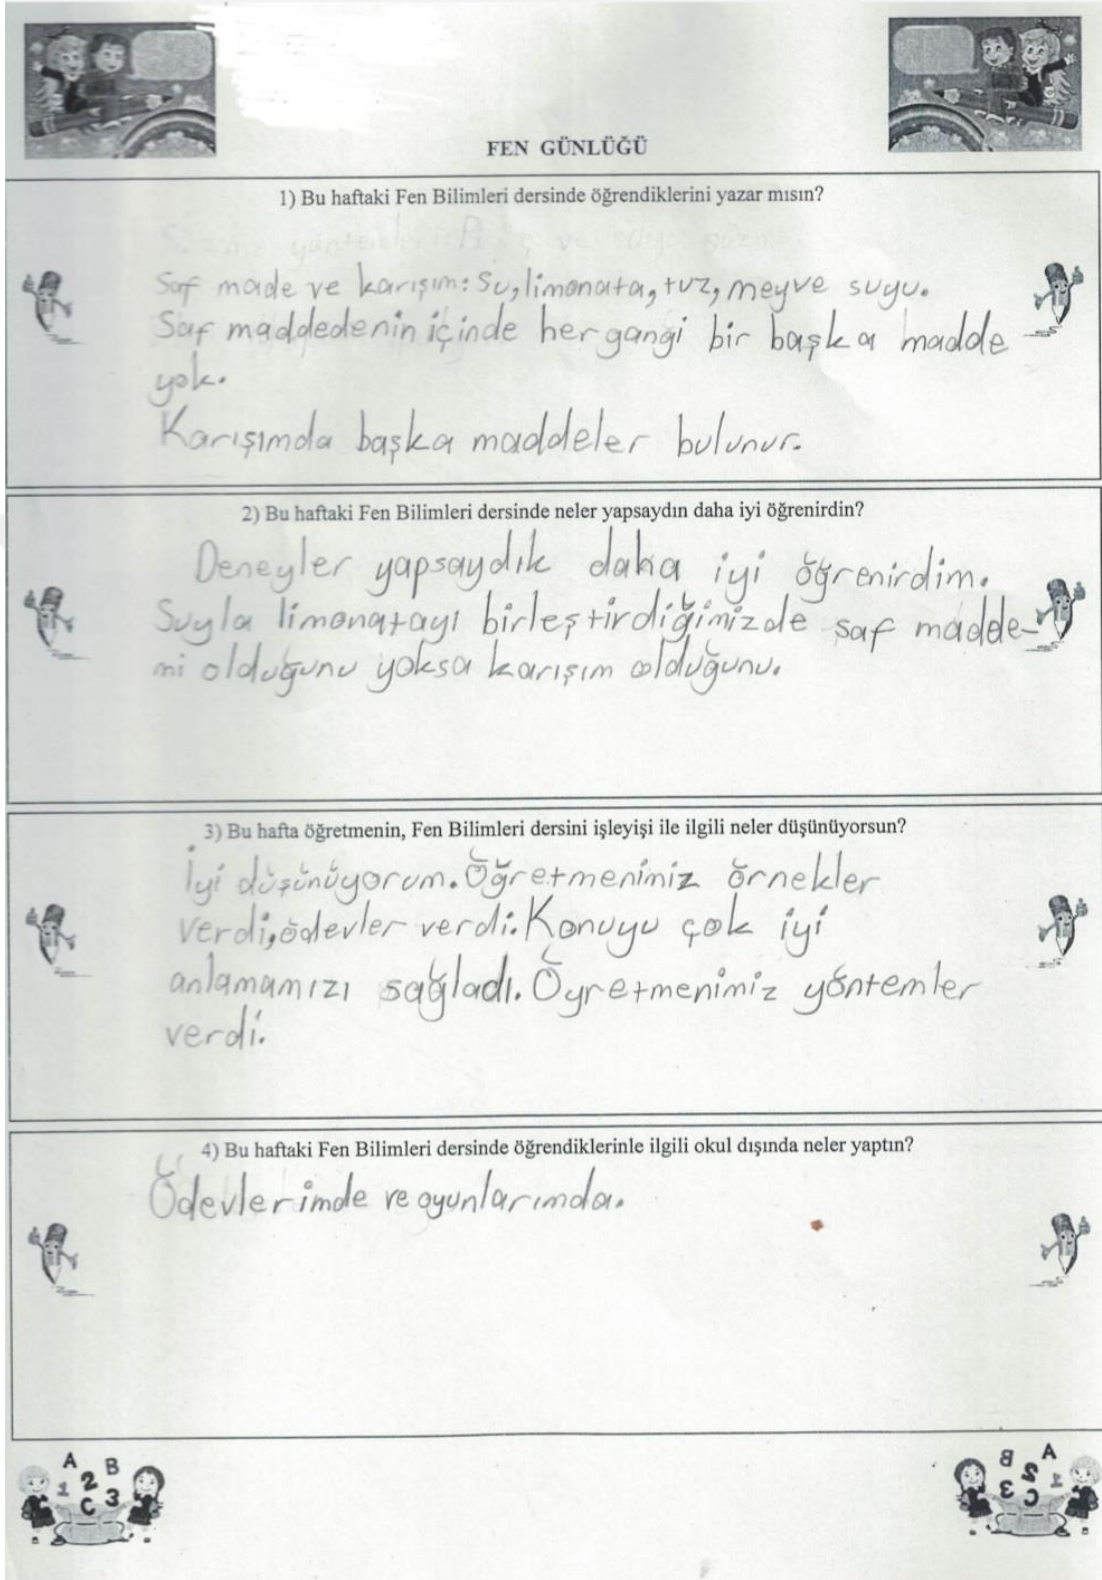 FEN GÜNLÜĞÜ
1) Bu haftaki Fen Bilimleri dersinde öğrendiklerini yazar mısın?
Saf made ve karışım: Su, limonata, tuz, meyve suyu.
Saf maddedenin içinde her gangi bir başka madde
yok.
Karışımda başka maddeler bulunur.
2) Bu haftaki Fen Bilimleri dersinde neler yapsaydın daha iyi öğrenirdin?
Deneyler yapsaydık daha iyi öğrenirdim.
Suyla limonatayı birleştirdiğimizde saf madde-
mi olduğunu yoksa karışım olduğunu.
3) Bu hafta öğretmenin, Fen Bilimleri dersini işleyişi ile ilgili neler düşünüyorsun?
İyi düşünüyorum. Öğretmenimiz örnekler
verdi, ödevler verdi. Konuyu çok iyi
anlamamızı sağladı. Öyretmenimiz yöntemler
verdi.
4) Bu haftaki Fen Bilimleri dersinde öğrendiklerinle ilgili okul dışında neler yaptın?
Ödevlerimde ve oyunlarımda.
A B
1 2
C 3
A B
1 2
C 3